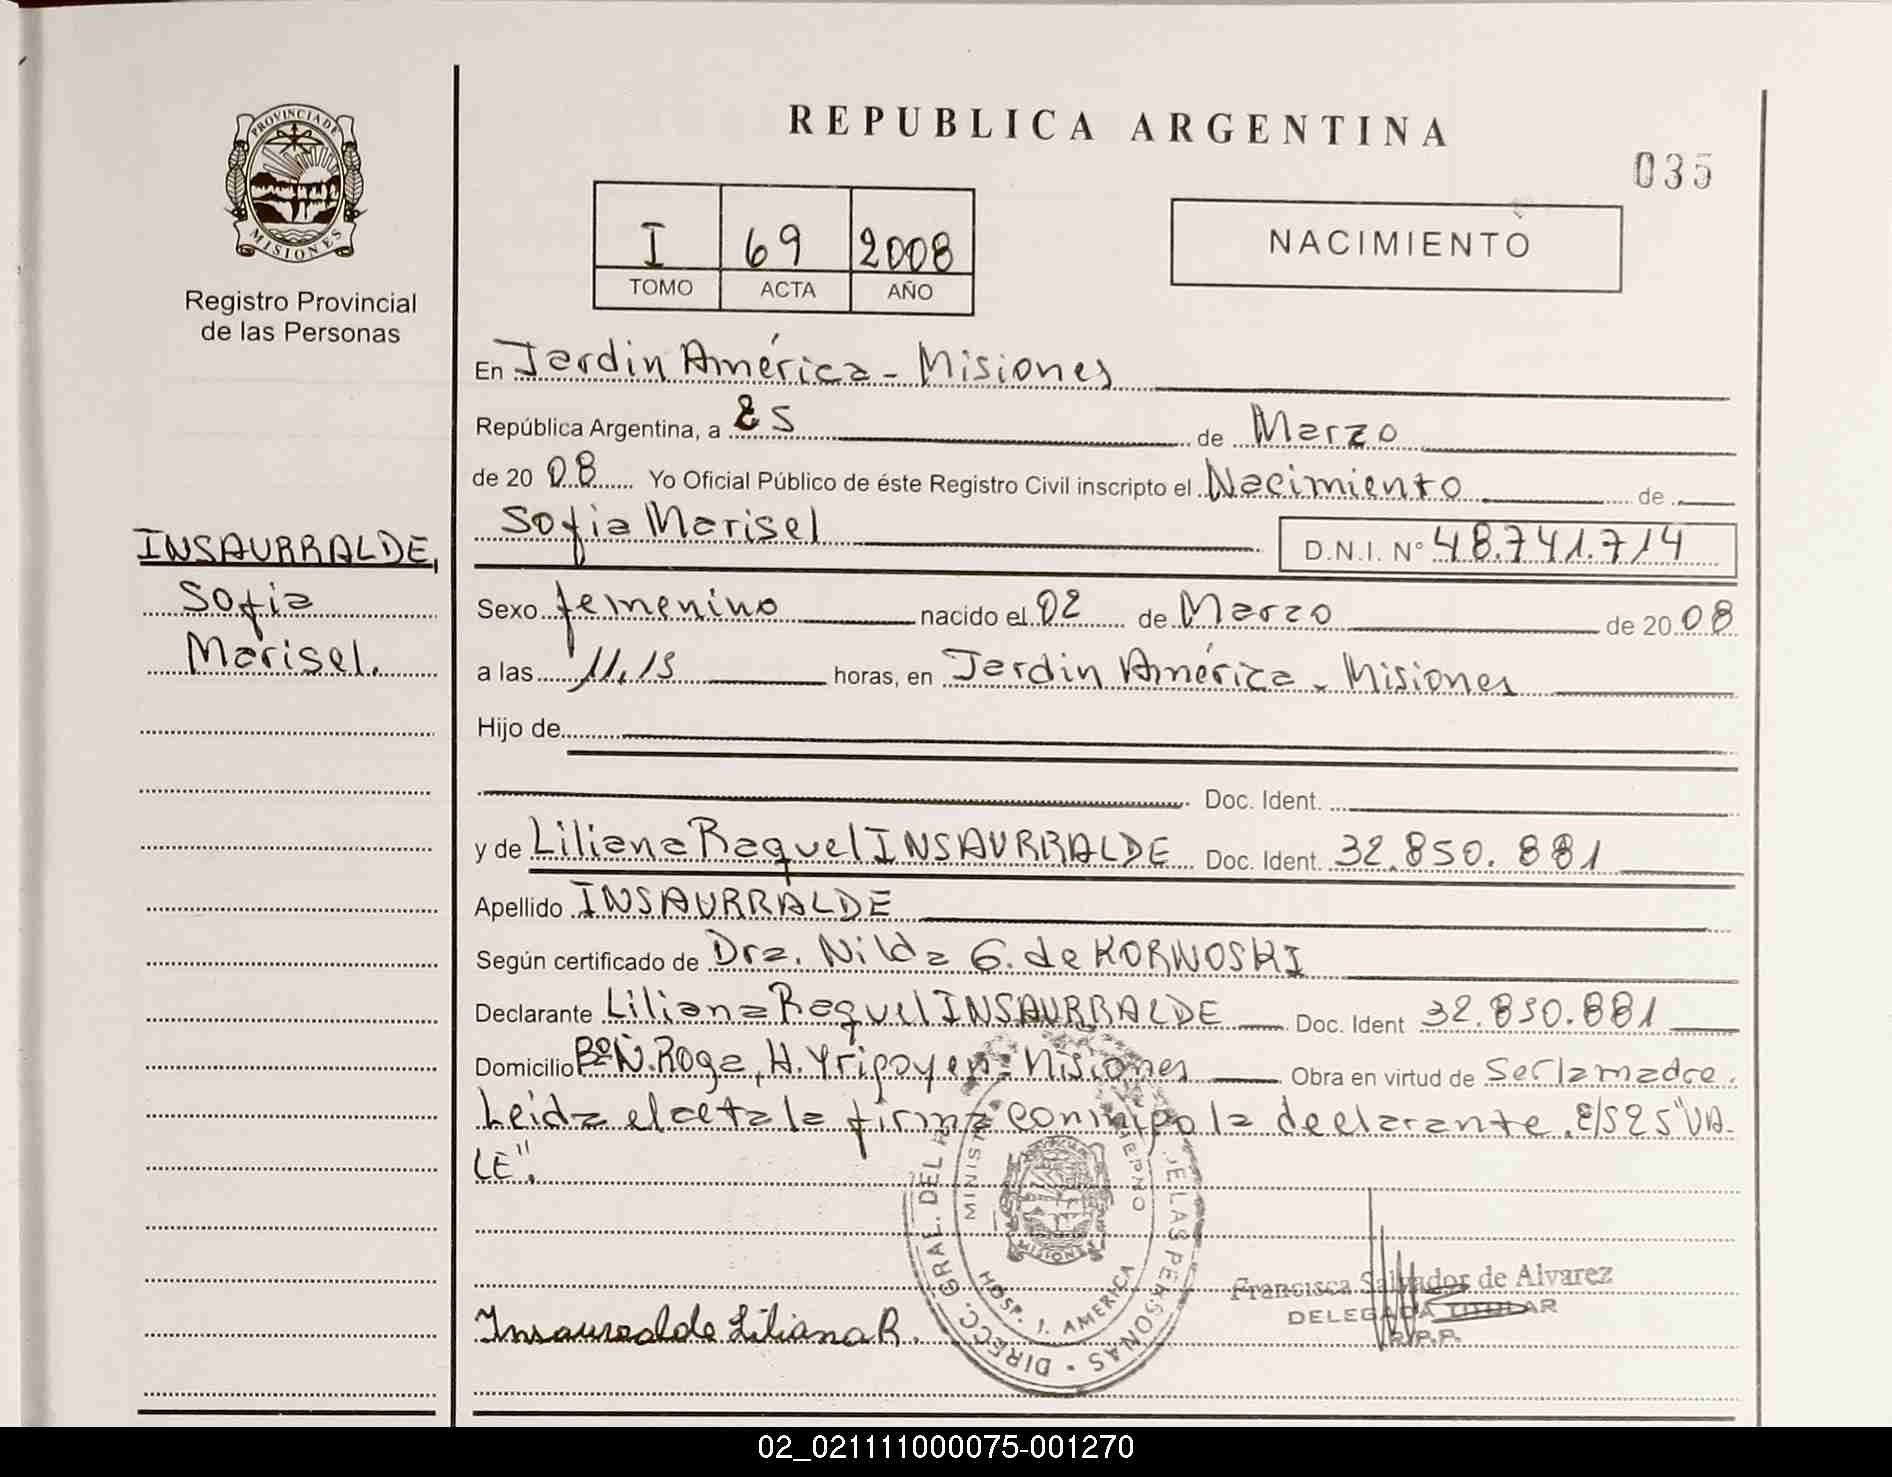 PROVINCIA DE
MISIONES
Registro Provincial
de las Personas
INSAURRALDE,
Sofia
Marisel.
REPUBLICA ARGENTINA
035
I 69 2008
TOMO ACTA AÑO
NACIMIENTO
En Jardin América - Misiones
República Argentina, a 25 de Marzo
de 20 08 Yo Oficial Público de éste Registro Civil inscripto el Nacimiento de
Sofia Marisel D.N.I. Nº 48.741.714
Sexo femenino nacido el 02 de Marzo de 20 08
a las 11,15 horas, en Jardin América - Misiones
Hijo de
Doc. Ident.
y de Liliana Raquel INSAURRALDE Doc. Ident. 32.850.881
Apellido INSAURRALDE
Según certificado de Dra. Nilda G. de KORNOSKI
Declarante Liliana Raquel INSAURRALDE Doc. Ident 32.850.881
Domicilio Bº Ñ. Roga, H. Yrigoyen - Misiones Obra en virtud de Ser la madre.
Leida el acta la firma conmigo la declarante. E/S 25 "VA-
LE".
DIRECC. GRAL. DEL DE LAS PERSONAS
HOSP. J. AMERICA
MISIONES
Francisca Salvador de Alvarez
DELEGADA TITULAR
R.P.P.
Insaurralde Liliana R.
02_021111000075-001270